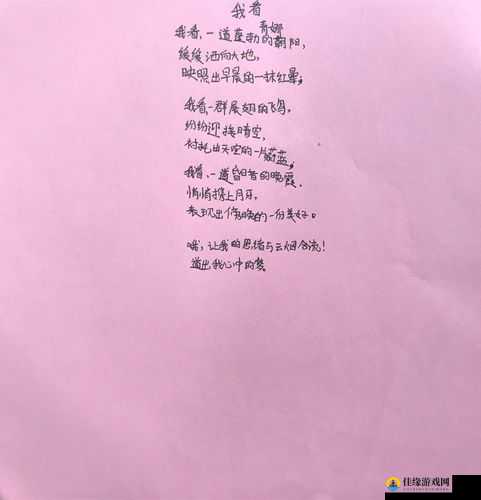 我看
青娜
我看,一道蓬勃的朝阳,
缓缓洒向大地,
映照出早晨的一抹红晕;
我看,一群展翅的飞鸟,
纷纷迎接晴空,
衬托出天空的一片蔚蓝;
我看,一道昏暗的晚霞,
悄悄携上月牙,
表现出傍晚的一份美好。
哦,让我的思绪与云烟合流!
道出我心中的梦
佳缘游戏网